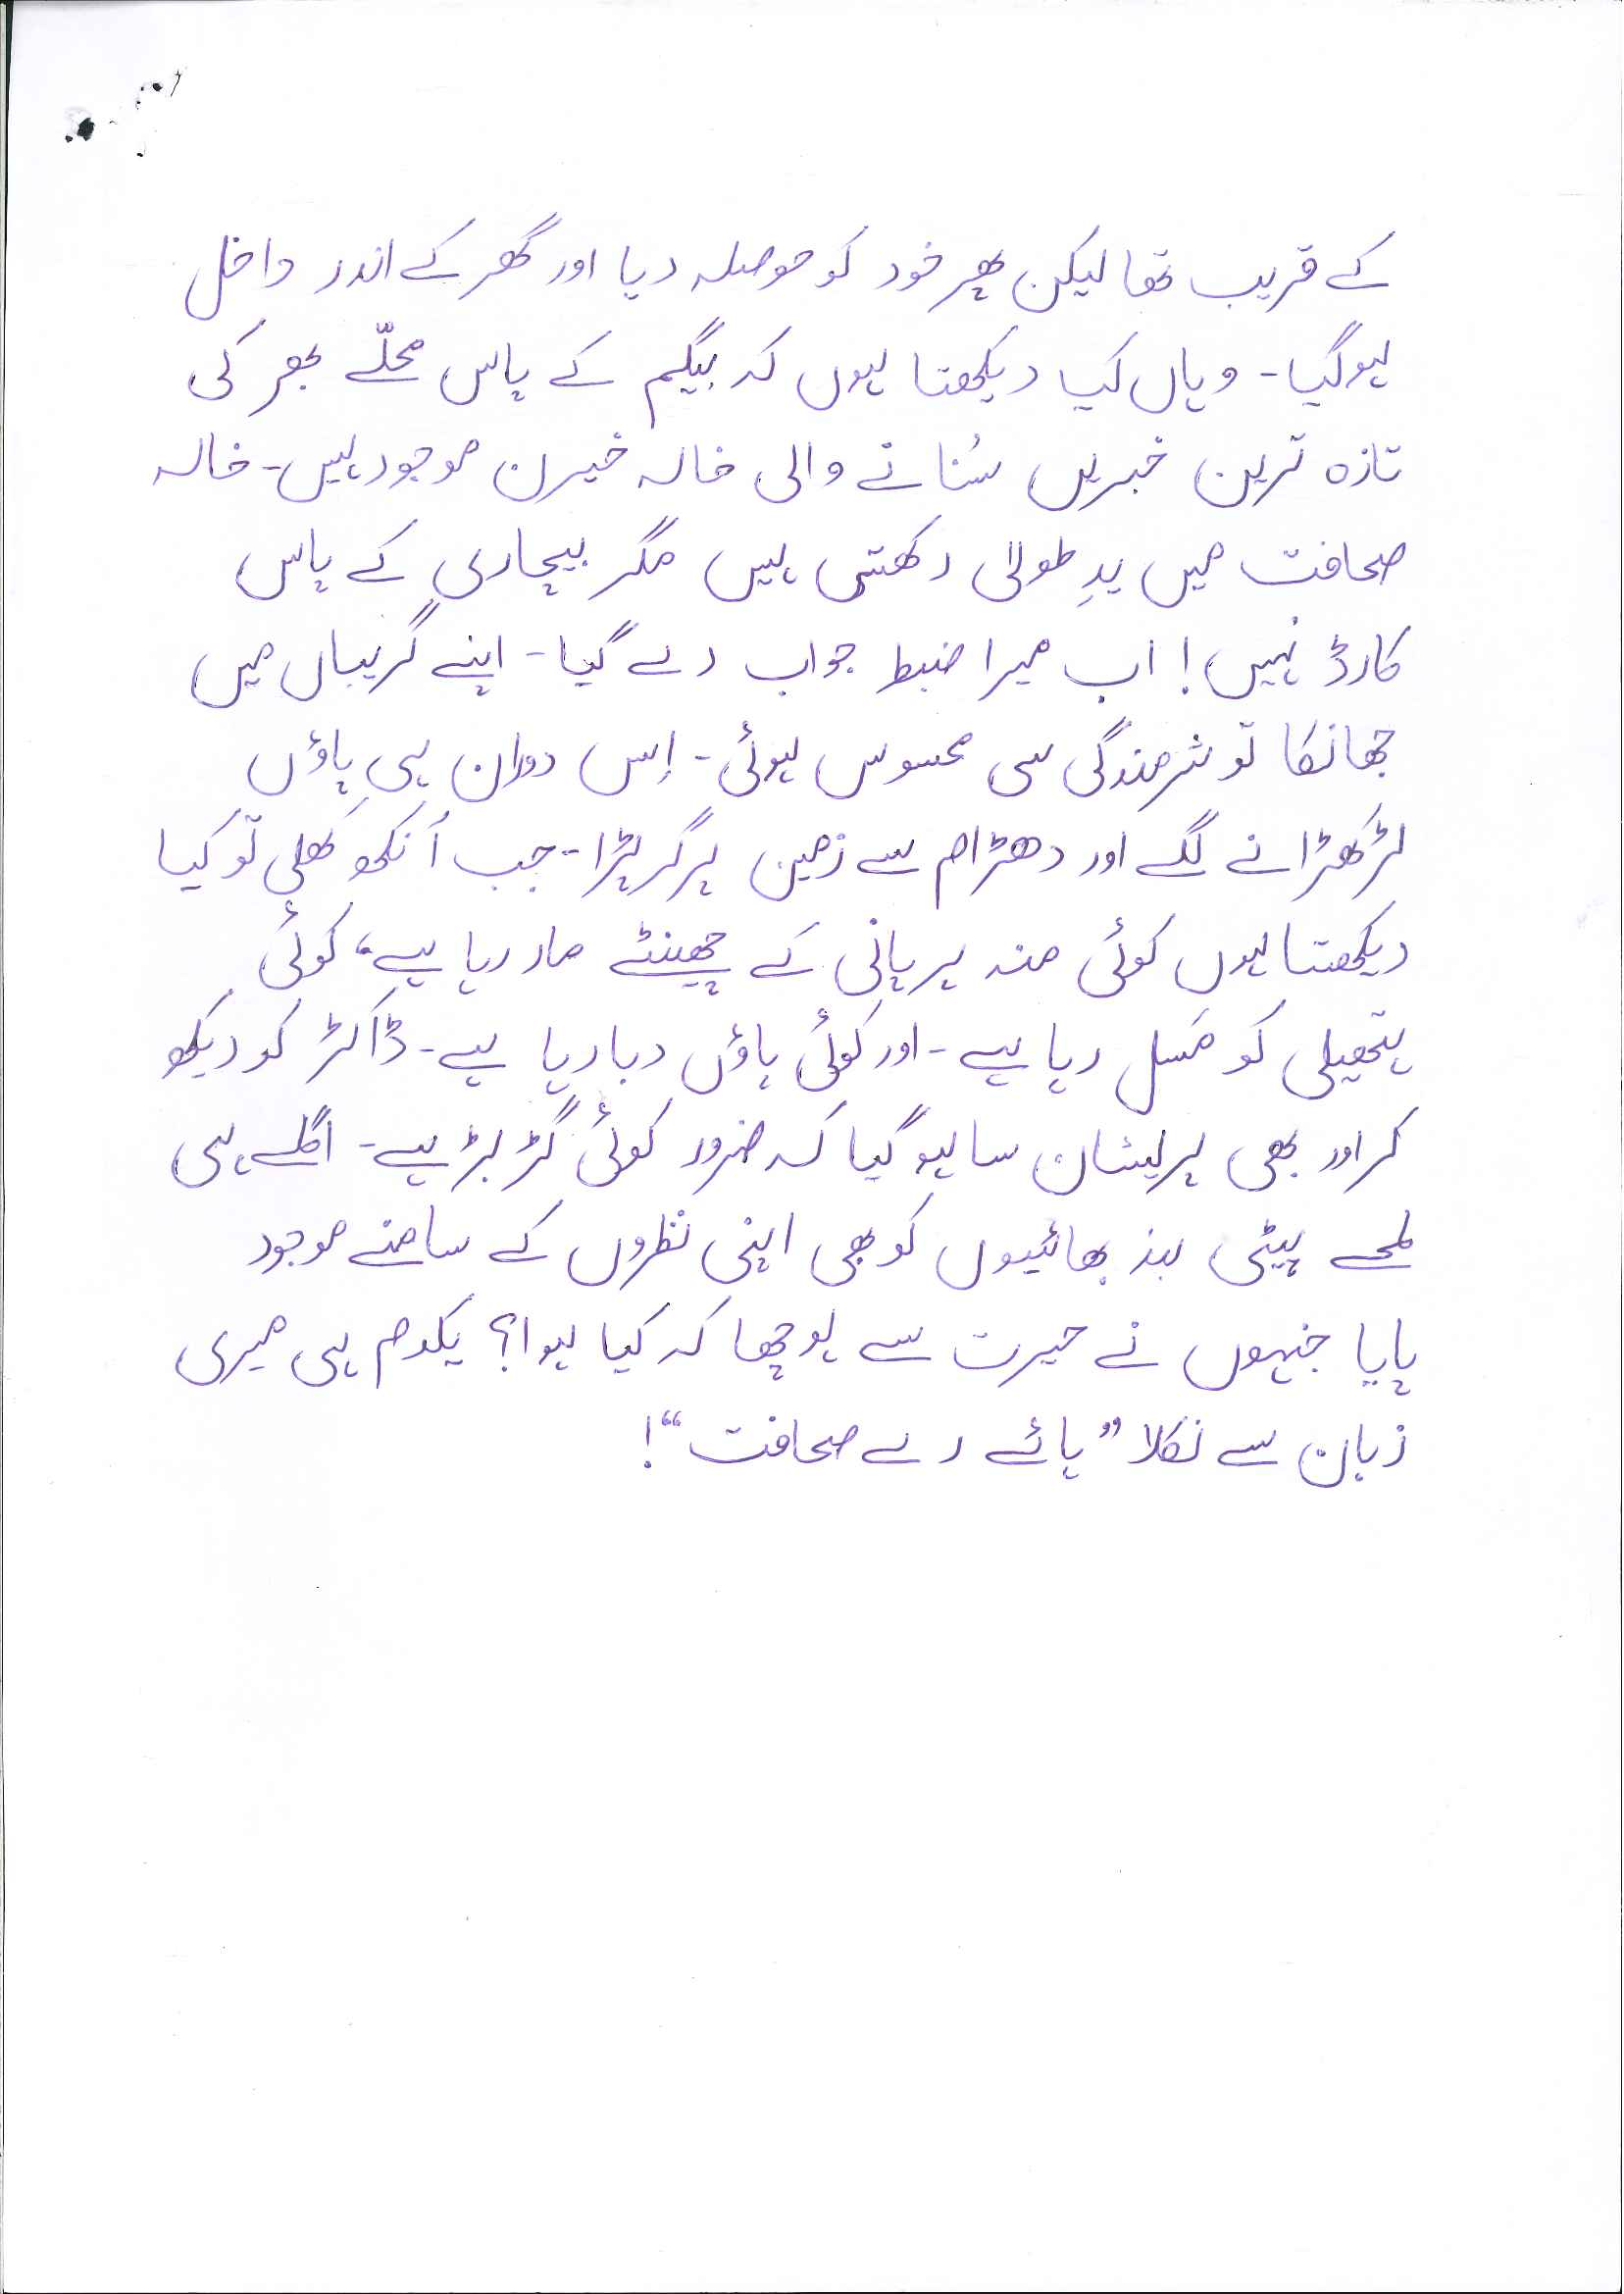 کے قریب تھا لیکن پھر خود کو حوصلہ دیا اور گھر کے اندر داخل
ہوگیا۔ وہاں کیا دیکھتا ہوں کہ بیگم کے پاس محلّے بھر کی
تازہ ترین خبریں سُنانے والی خالہ خیرن موجود ہیں۔ خالہ
صحافت میں یدِ طولٰی رکھتی ہیں مگر بیچاری کے پاس
کارڈ نہیں! اب میرا ضبط جواب دے گیا۔ اپنے گریباں میں
جھانکا تو شرمندگی سی محسوس ہوئی۔ اِس دوران ہی پاؤں
لڑکھڑانے لگے اور دھڑام سے زمین پر گر پڑا۔ جب آنکھ کھلی تو کیا
دیکھتا ہوں کوئی منہ پر پانی کے چھینٹے مار رہا ہے، کوئی
ہتھیلی کو مَسل رہا ہے۔ اور کوئی پاؤں دبا رہا ہے۔ ڈاکٹر کو دیکھ
کر اور بھی پریشان سا ہو گیا کہ ضرور کوئی گڑبڑ ہے۔ اگلے ہی
لمحے پیٹی بند بھائیوں کو بھی اپنی نظروں کے سامنے موجود
پایا جنہوں نے حیرت سے پوچھا کہ کیا ہوا؟ یکدم ہی میری
زبان سے نکلا ”ہائے رے صحافت“!